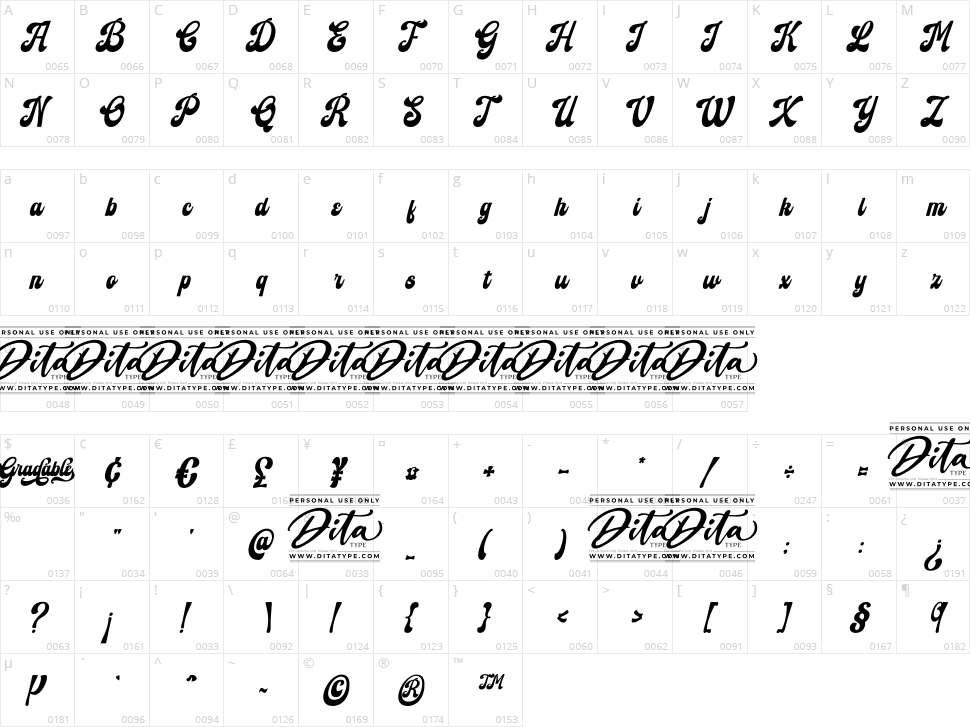 A B C D E F G H I J K L M
A B C D E F G H I J K L M
0065 0066 0067 0068 0069 0070 0071 0072 0073 0074 0075 0076 0077
N O P Q R S T U V W X Y Z
N O P Q R S T U V W X Y Z
0078 0079 0080 0081 0082 0083 0084 0085 0086 0087 0088 0089 0090
a b c d e f g h i j k l m
a b c d e f g h i j k l m
0097 0098 0099 0100 0101 0102 0103 0104 0105 0106 0107 0108 0109
n o p q r s t u v w x y z
n o p q r s t u v w x y z
0110 0111 0112 0113 0114 0115 0116 0117 0118 0119 0120 0121 0122
PERSONAL USE ONLY
Dita Dita Dita Dita Dita Dita Dita Dita Dita Dita
TYPE
WWW.DITATYPE.COM
0048 0049 0050 0051 0052 0053 0054 0055 0056 0057
PERSONAL USE ON
$ ¢ € £ ¥ ¤ + - * / ÷ =
Gradable ¢ € £ ¥ ¤ + - * / ÷ = Dita
WWW.DITATYPE.C
0036 0162 0128 0164 0043 0247 0061 0037
PERSONAL USE ONLY
‰ " ' @ ( ) : ¿
" ' @ Dita _ ( ) Dita Dita ; : ¿
TYPE TYPE
WWW.DITATYPE.COM
0137 0034 0039 0064 0038 0095 0040 0041 0044 0046 0059 0058 0191
? ¡ ! \ | { } < > [ ] § ¶
? ¡ ! \ | { } < > [ ] § ¶
0063 0161 0033 0092 0124 0123 0125 0060 0062 0091 0093 0167 0182
µ ` ^ ~ © ® ™
µ ` ^ ~ © ® ™
0181 0096 0094 0126 0169 0174 0153